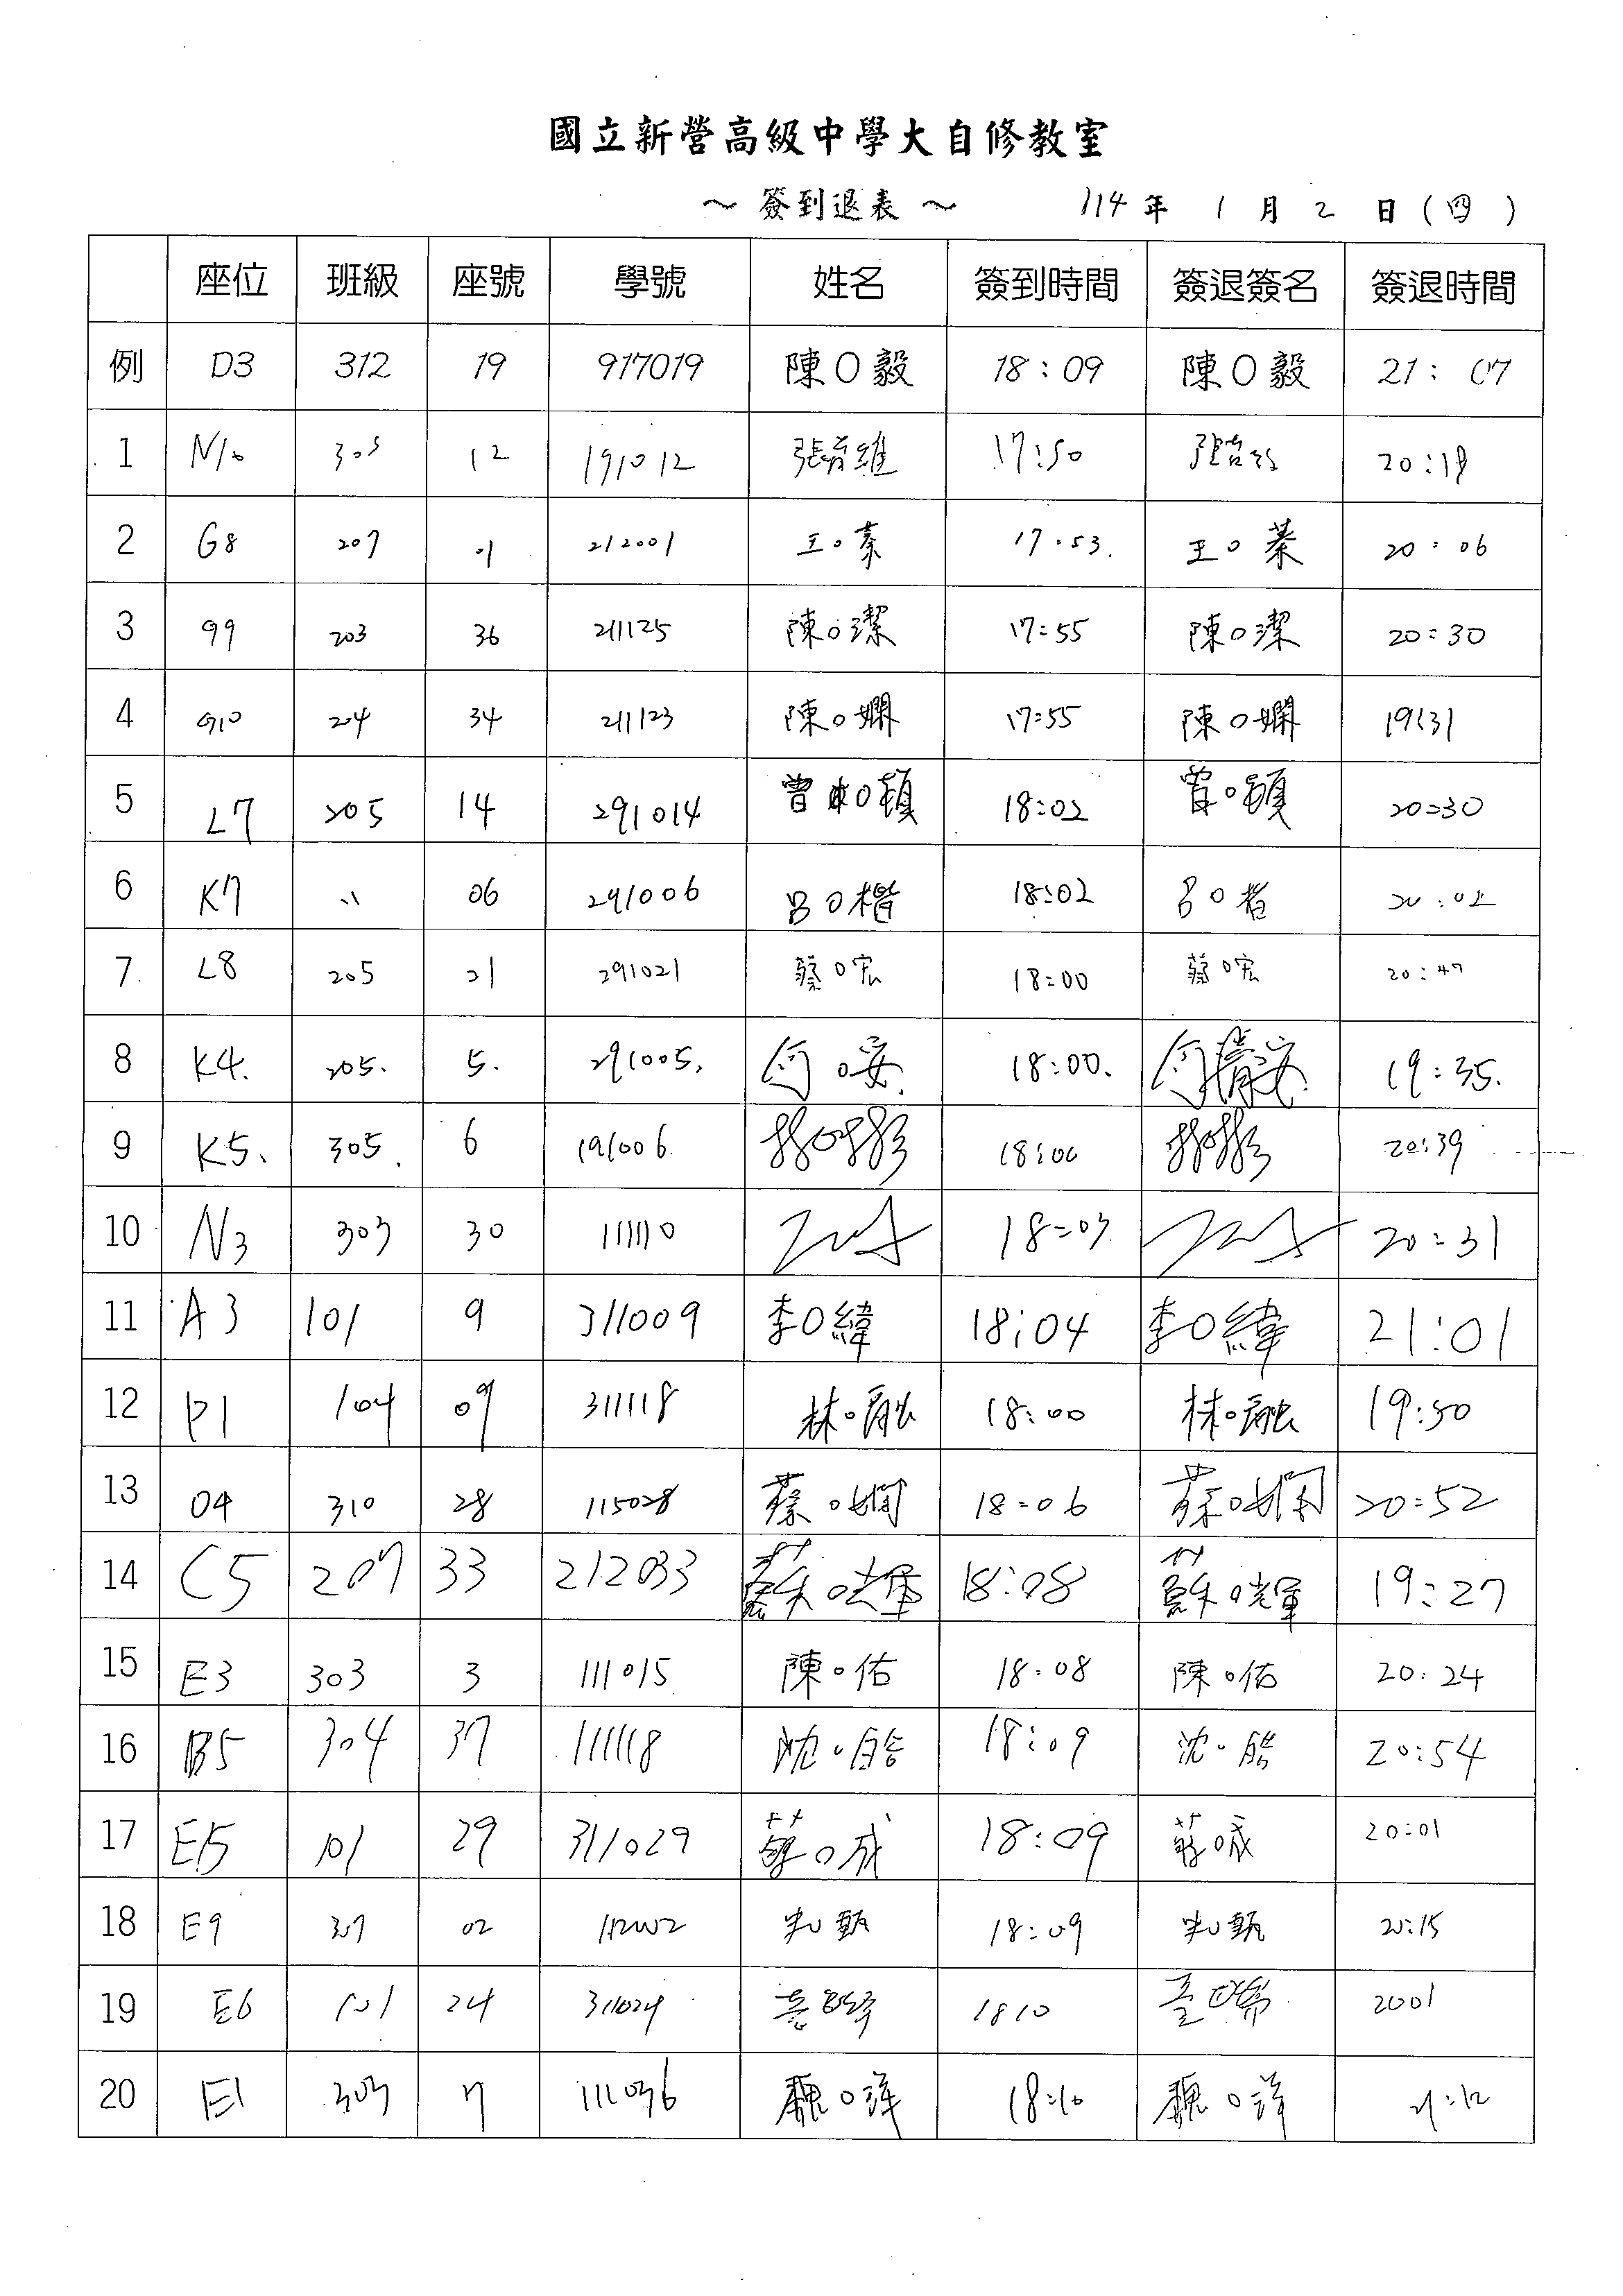 國立新營高級中學大自修教室
～簽到退表～ 114年 1月2日(四)
座位 班級 座號 學號 姓名 簽到時間 簽退簽名 簽退時間
例 D3 312 19 917019 陳O毅 18:09 陳O毅 21:07
1 N10 305 12 191012 17:50 20:18
2 G8 207 01 212001 王O蓁 17:53. 王O蓁 20:06
3 G9 203 36 211125 陳O潔 17:55 陳O潔 20:30
4 G10 204 34 211123 陳O嫻 17:55 陳O嫻 19:31
5 L7 205 14 291014 曾O穎 18:02 曾O穎 20:30
6 K7 〃 06 291006 呂O楷 18:02 呂O楷 20:02
7 L8 205 21 291021 蔡O宏 18:00 蔡O宏 20:47
8 K4. 205. 5. 291005. 何O安. 18:00. 19:35.
9 K5. 305. 6 191006. 18:00 20:39
10 N3 303 30 111110 18:03 20:31
11 A3 101 9 311009 李O緯 18:04 李O緯 21:01
12 P1 104 09 311118 林O融 18:00 林O融 19:50
13 O4 310 28 115028 蔡O嫻 18:06 20:52
14 C5 207 33 212033 蘇O輝 18:08 蘇O輝 19:27
15 E3 303 3 111015 陳O佑 18:08 陳O佑 20:24
16 B5 304 37 111118 沈O皓 18:09 沈O皓 20:54
17 E15 101 29 311029 18:09 20:01
18 E9 307 02 112002 18:09 20:15
19 E6 101 24 311024 1810 2001
20 E1 303 7 111036 魏O洋 18:10 魏O洋 21:12